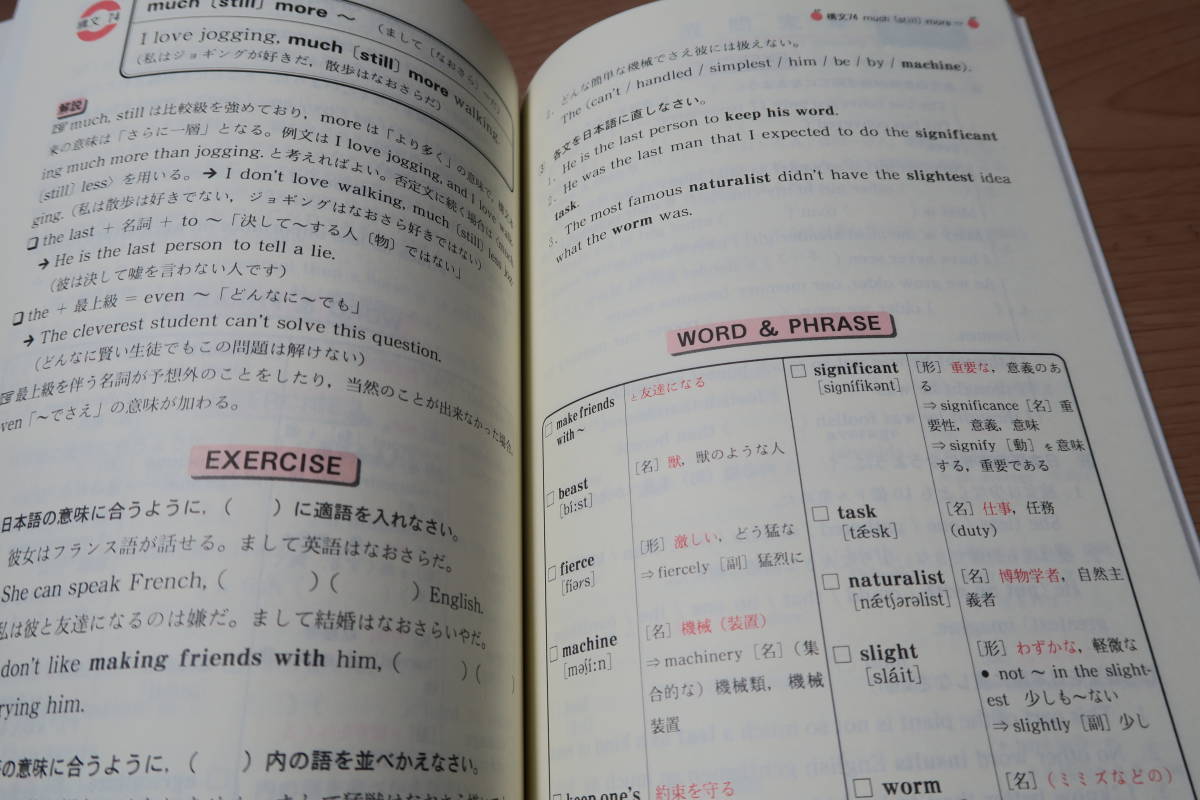 構文 74
much〔still〕more ～ （まして〔なおさら〕～だ）
I love jogging, much〔still〕more walking.
（私はジョギングが好きだ，散歩はなおさらだ）
解説
much, still は比較級を強めており，more は「より多く」の意味で，
来の意味は「さらに一層」となる。例文は I love jogging, and I love walk-
ing much more than jogging. と考えればよい。否定文に続く場合は〈much
〔still〕less〉を用いる。→ I don't love walking, much〔still〕less jog-
ging.（私は散歩は好きでない，ジョギングはなおさら好きではない）
□ the last + 名詞 + to ～「決して～する人〔物〕ではない」
→ He is the last person to tell a lie.
（彼は決して嘘を言わない人です）
□ the + 最上級 = even ～「どんなに～でも」
→ The cleverest student can't solve this question.
（どんなに賢い生徒でもこの問題は解けない）
最上級を伴う名詞が予想外のことをしたり，当然のことが出来なかった場合，
ven「～でさえ」の意味が加わる。
EXERCISE
日本語の意味に合うように，（　　）に適語を入れなさい。
彼女はフランス語が話せる。まして英語はなおさらだ。
She can speak French, (　　) (　　) English.
私は彼と友達になるのは嫌だ。まして結婚はなおさらいやだ。
don't like making friends with him, (　　) (　　)
rying him.
の意味に合うように，（　　）内の語を並べかえなさい。
構文74 much〔still〕more ～
2. どんな簡単な機械でさえ彼には扱えない。
The (can't / handled / simplest / him / be / by / machine).
3 各文を日本語に直しなさい。
1. He is the last person to keep his word.
2. He was the last man that I expected to do the significant
task.
3. The most famous naturalist didn't have the slightest idea
what the worm was.
WORD & PHRASE
□ make friends with ～
と友達になる
□ beast [bíːst]
［名］獣，獣のような人
□ fierce [fiərs]
［形］激しい，どう猛な
⇒ fiercely［副］猛烈に
□ machine [məʃíːn]
［名］機械（装置）
⇒ machinery［名］（集
合的な）機械類，機械
装置
□ keep one's
約束を守る
□ significant [signífikənt]
［形］重要な，意義のあ
る
⇒ significance［名］重
要性，意義，意味
⇒ signify［動］を意味
する，重要である
□ task [tǽsk]
［名］仕事，任務
(duty)
□ naturalist [nǽtʃərəlist]
［名］博物学者，自然主
義者
□ slight [sláit]
［形］わずかな，軽微な
● not ～ in the slight-
est 少しも～ない
⇒ slightly［副］少し
□ worm
［名］（ミミズなどの）